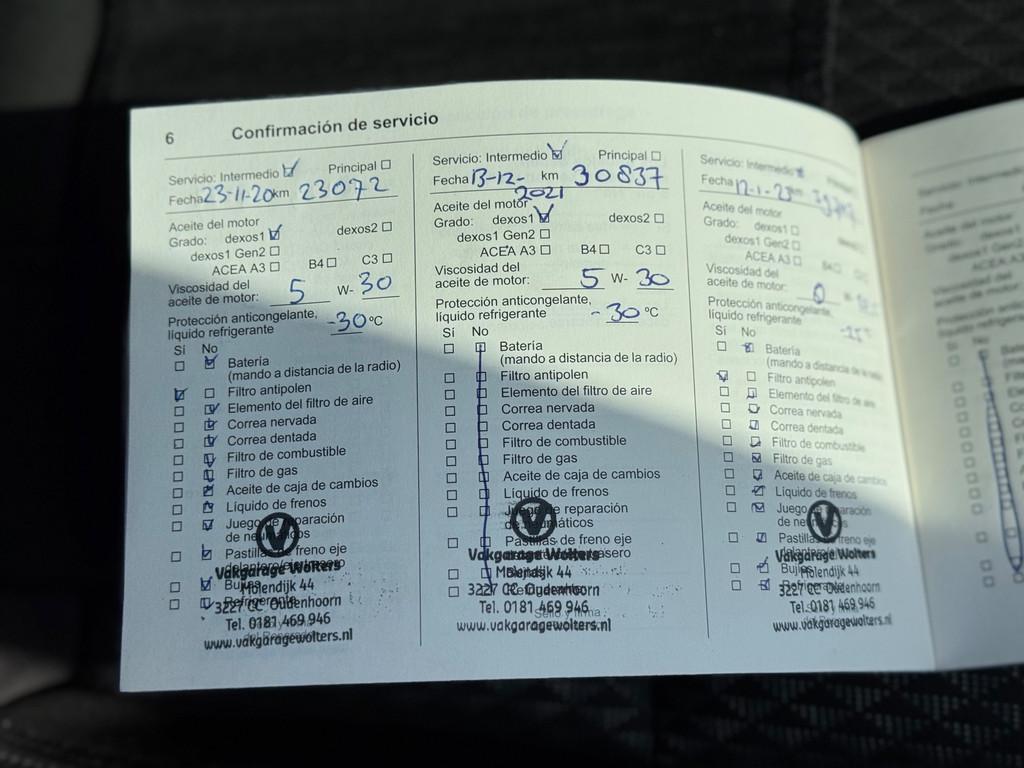 6 Confirmación de servicio
Servicio: Intermedio Principal
Fecha 23-11-20 km 23072
Aceite del motor
Grado: dexos1 dexos2
dexos1 Gen2
ACEA A3 B4 C3
Viscosidad del
aceite de motor: 5 W- 30
Protección anticongelante,
líquido refrigerante -30 °C
Sí No
Batería
(mando a distancia de la radio)
Filtro antipolen
Elemento del filtro de aire
Correa nervada
Correa dentada
Filtro de combustible
Filtro de gas
Aceite de caja de cambios
Líquido de frenos
Juego de reparación
de neumáticos
Pastillas de freno eje
Bujías
Refrigerante
Vakgarage Wolters
Molendijk 44
3227 CC Oudenhoorn
Tel. 0181 469 946
www.vakgaragewolters.nl
Servicio: Intermedio Principal
Fecha 13-12- km 30837
2021
Aceite del motor
Grado: dexos1 dexos2
dexos1 Gen2
ACEA A3 B4 C3
Viscosidad del
aceite de motor: 5 W- 30
Protección anticongelante,
líquido refrigerante -30 °C
Sí No
Batería
(mando a distancia de la radio)
Filtro antipolen
Elemento del filtro de aire
Correa nervada
Correa dentada
Filtro de combustible
Filtro de gas
Aceite de caja de cambios
Líquido de frenos
Juego de reparación
de neumáticos
Pastillas de freno eje
Vakgarage Wolters
Molendijk 44
3227 CC Oudenhoorn
Sello y firma
Tel. 0181 469 946
www.vakgaragewolters.nl
Servicio: Intermedio Principal
Fecha 12-1-23 km
Aceite del motor
Grado: dexos1
dexos1 Gen2
ACEA A3 B4
Viscosidad del
aceite de motor: 0 W-
Protección anticongelante,
líquido refrigerante
Sí No
Batería
(mando a distancia de la radio)
Filtro antipolen
Elemento del filtro de aire
Correa nervada
Correa dentada
Filtro de combustible
Filtro de gas
Aceite de caja de cambios
Líquido de frenos
Juego de reparación
Pastillas de freno eje
Bujías
Refrigerante
Vakgarage Wolters
Molendijk 44
3227 CC Oudenhoorn
Tel. 0181 469 946
www.vakgaragewolters.nl